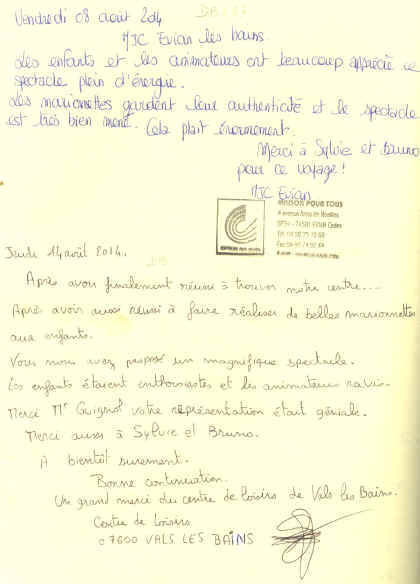 Vendredi 08 août 2014
MJC Evian les bains.
Les enfants et les animateurs ont beaucoup apprécié ce
spectacle plein d'énergie.
Les marionettes gardent leur authenticité et le spectacle
est très bien mené. Cela plait énormement.
Merci à Sylvie et Bruno
pour ce voyage!
MJC Evian
MAISON POUR TOUS
74501 EVIAN Cedex
Jeudi 14 août 2014.
Après avoir finalement réussi à trouver notre centre....
Après avoir aussi réussi à faire réaliser de belles marionnettes
aux enfants.
Vous nous avez proposé un magnifique spectacle.
Les enfants étaient enthousiastes et les animateurs ravis.
Merci Mr Guignol votre représentation était géniale.
Merci aussi à Sylvie et Bruno.
A bientôt surement.
Bonne continuation.
Un grand merci du centre de loisirs de Vals les Bains.
Centre de Loisirs
07600 VALS LES BAINS